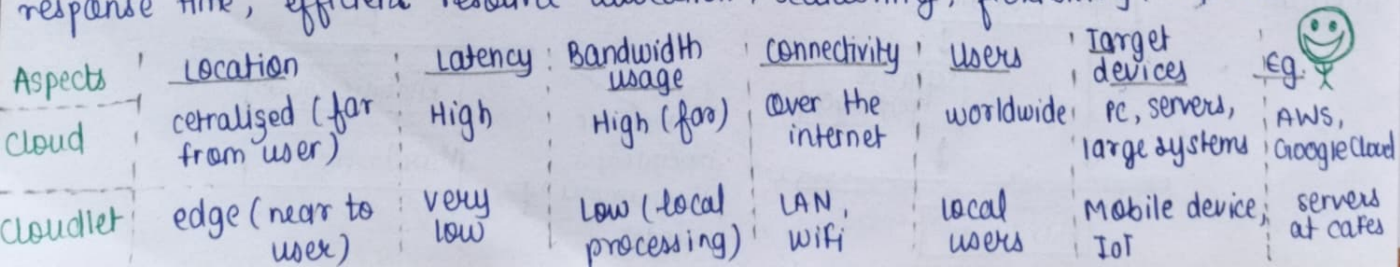 response time, efficient
Aspects Location Latency Bandwidth usage connectivity Users Target devices Eg.
Cloud cetralized (far from user) High High (far) over the internet worldwide PC, servers, large systems AWS, Google Cloud
Cloudlet edge (near to user) very low Low (local processing) LAN, WiFi local users Mobile device, IoT servers at cafes